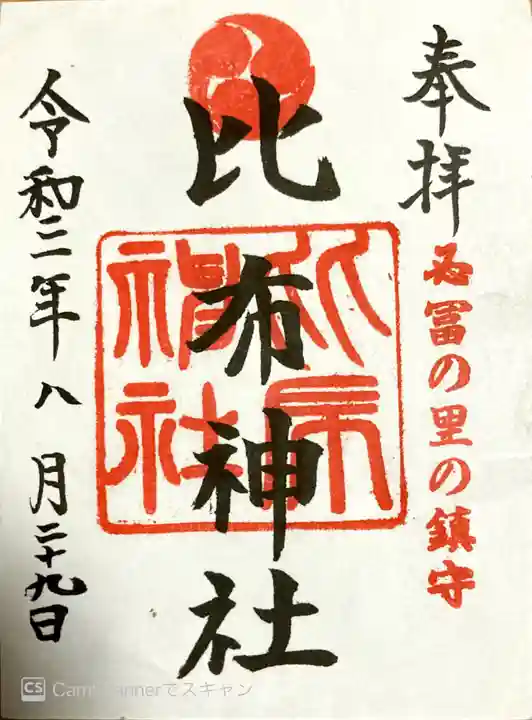 奉拝
名冨の里の鎮守
比布神社
令和三年八月二十九日
CS CamScannerでスキャン